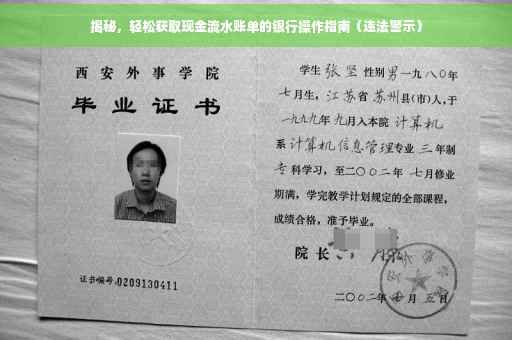 揭秘，轻松获取现金流水账单的银行操作指南（违法警示）
西安外事学院
毕业证书
证书编号:0209130411
学生 张坚 性别男 一九八〇年
七月生，江苏省 苏州县(市)人，于
一九九九年 九月入本院 计算机
系 计算机信息管理专业 三年制
专科学习，至二〇〇二年 七月修业
期满，学完教学计划规定的全部课程，
成绩合格，准予毕业。
院长
二〇〇二年 七月 五日